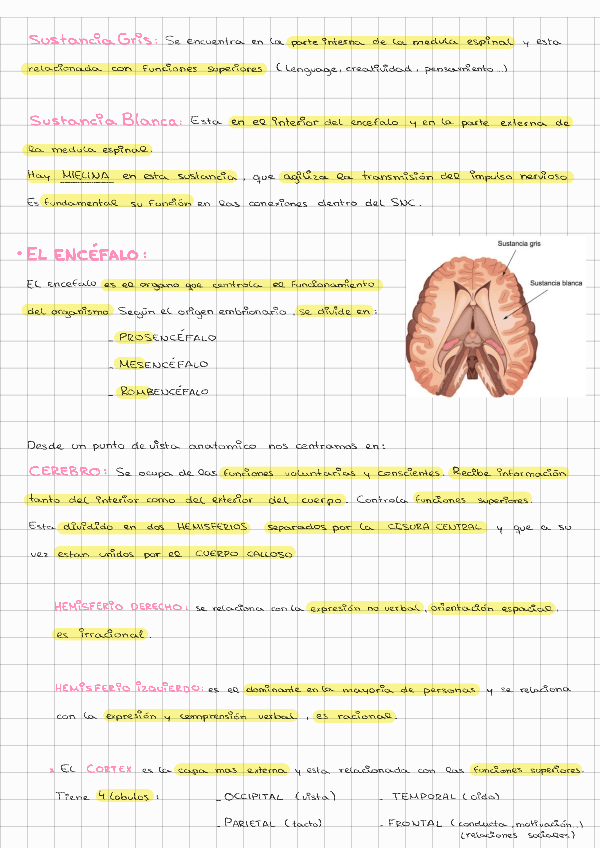 Sustancia Gris: Se encuentra en la parte interna de la medula espinal y esta
relacionada con funciones superiores (lenguage, creatividad, pensamiento...)
Sustancia Blanca: Esta en el interior del encefalo y en la parte externa de
la medula espinal.
Hay MIELINA en esta sustancia, que agiliza la transmisión del impulso nervioso
Es fundamental su función en las conexiones dentro del SNC.
• EL ENCÉFALO:
El encefalo es el organo que controla el funcionamiento
del organismo. Según el origen embrionario, se divide en:
- PROSENCÉFALO
- MESENCÉFALO
- ROMBENCÉFALO
Sustancia gris
Sustancia blanca
Desde un punto de vista anatomico nos centramos en:
CEREBRO: Se ocupa de las funciones voluntarias y conscientes. Recibe información
tanto del interior como del exterior del cuerpo. Controla funciones superiores.
Esta dividido en dos HEMISFERIOS separados por la CISURA CENTRAL y que a su
vez estan unidos por el CUERPO CALLOSO
HEMISFERIO DERECHO: se relaciona con la expresión no verbal, orientación espacial,
es irracional.
HEMISFERIO IZQUIERDO: es el dominante en la mayoria de personas y se relaciona
con la expresión y comprensión verbal, es racional.
x El CORTEX es la capa mas externa y esta relacionada con las funciones superiores.
Tiene 4 lobulos: - OCCIPITAL (vista) - TEMPORAL (oido)
- PARIETAL (tacto) - FRONTAL (conducta, motivación..)
(relaciones sociales)